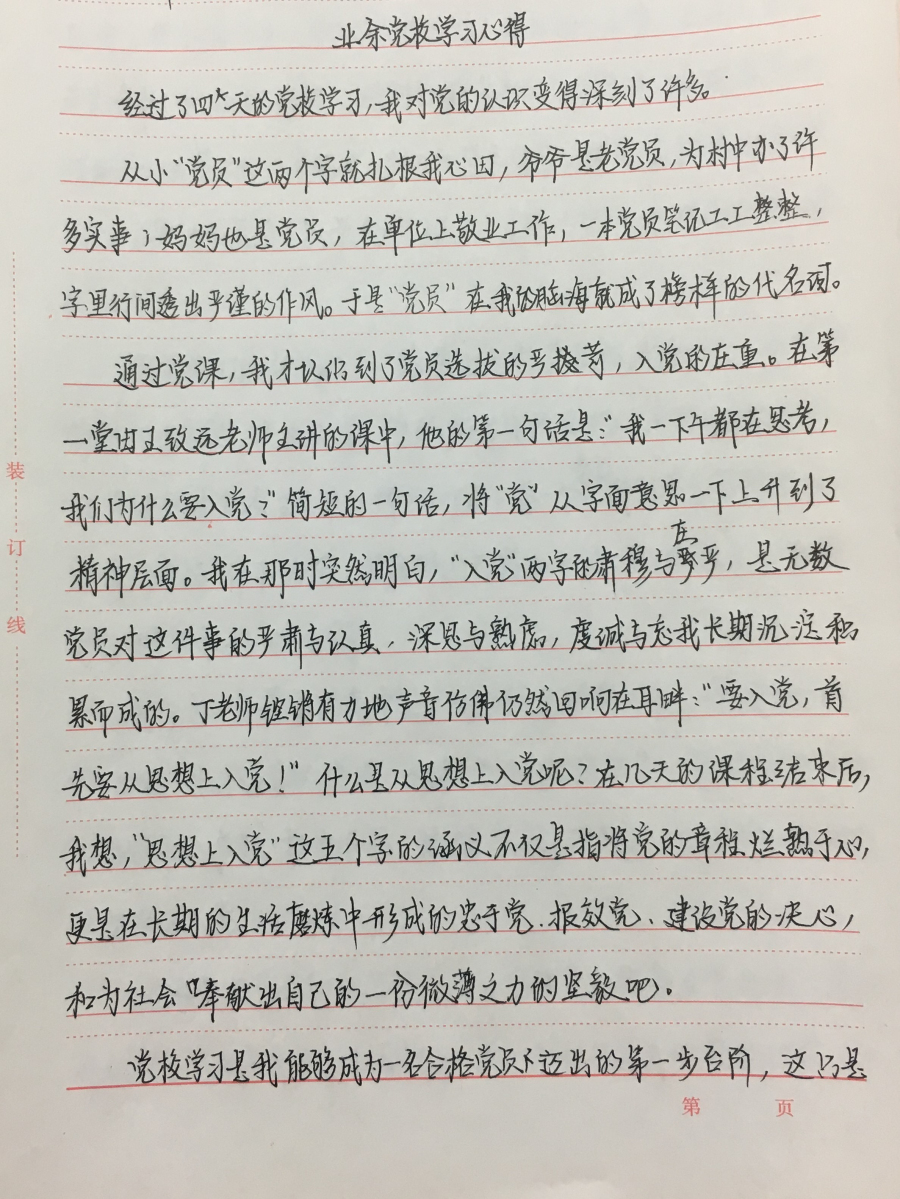 业余党校学习心得
经过了四天的党校学习，我对党的认识变得深刻了许多。
从小“党员”这两个字就扎根我心田，爷爷是老党员，为村中办了许
多实事；妈妈也是党员，在单位上敬业工作，一本党员笔记工工整整，
字里行间透出严谨的作风。于是“党员”在我的脑海就成了榜样的代名词。
通过党课，我才认识到了党员选拔的严苛，入党的庄重。在第
一堂由王致远老师主讲的课中，他的第一句话是：“我一下午都在思考，
我们为什么要入党？”简短的一句话，将“党”从字面意思一下上升到了
精神层面。我在那时突然明白，“入党”两字的肃穆与庄严，是无数
党员对这件事的严肃与认真，深思与熟虑，虔诚与忘我长期沉淀积
累而成的。丁老师铿锵有力地声音仿佛仍然回响在耳畔：“要入党，首
先要从思想上入党！”什么是从思想上入党呢？在几天的课程结束后，
我想，“思想上入党”这五个字的涵义不仅是指将党的章程烂熟于心，
更是在长期的生活磨炼中形成的忠于党、报效党、建设党的决心，
和为社会奉献出自己的一份微薄之力的坚毅吧。
党校学习是我能够成为一名合格党员迈出的第一步台阶，这只是
装
订
线
第 页